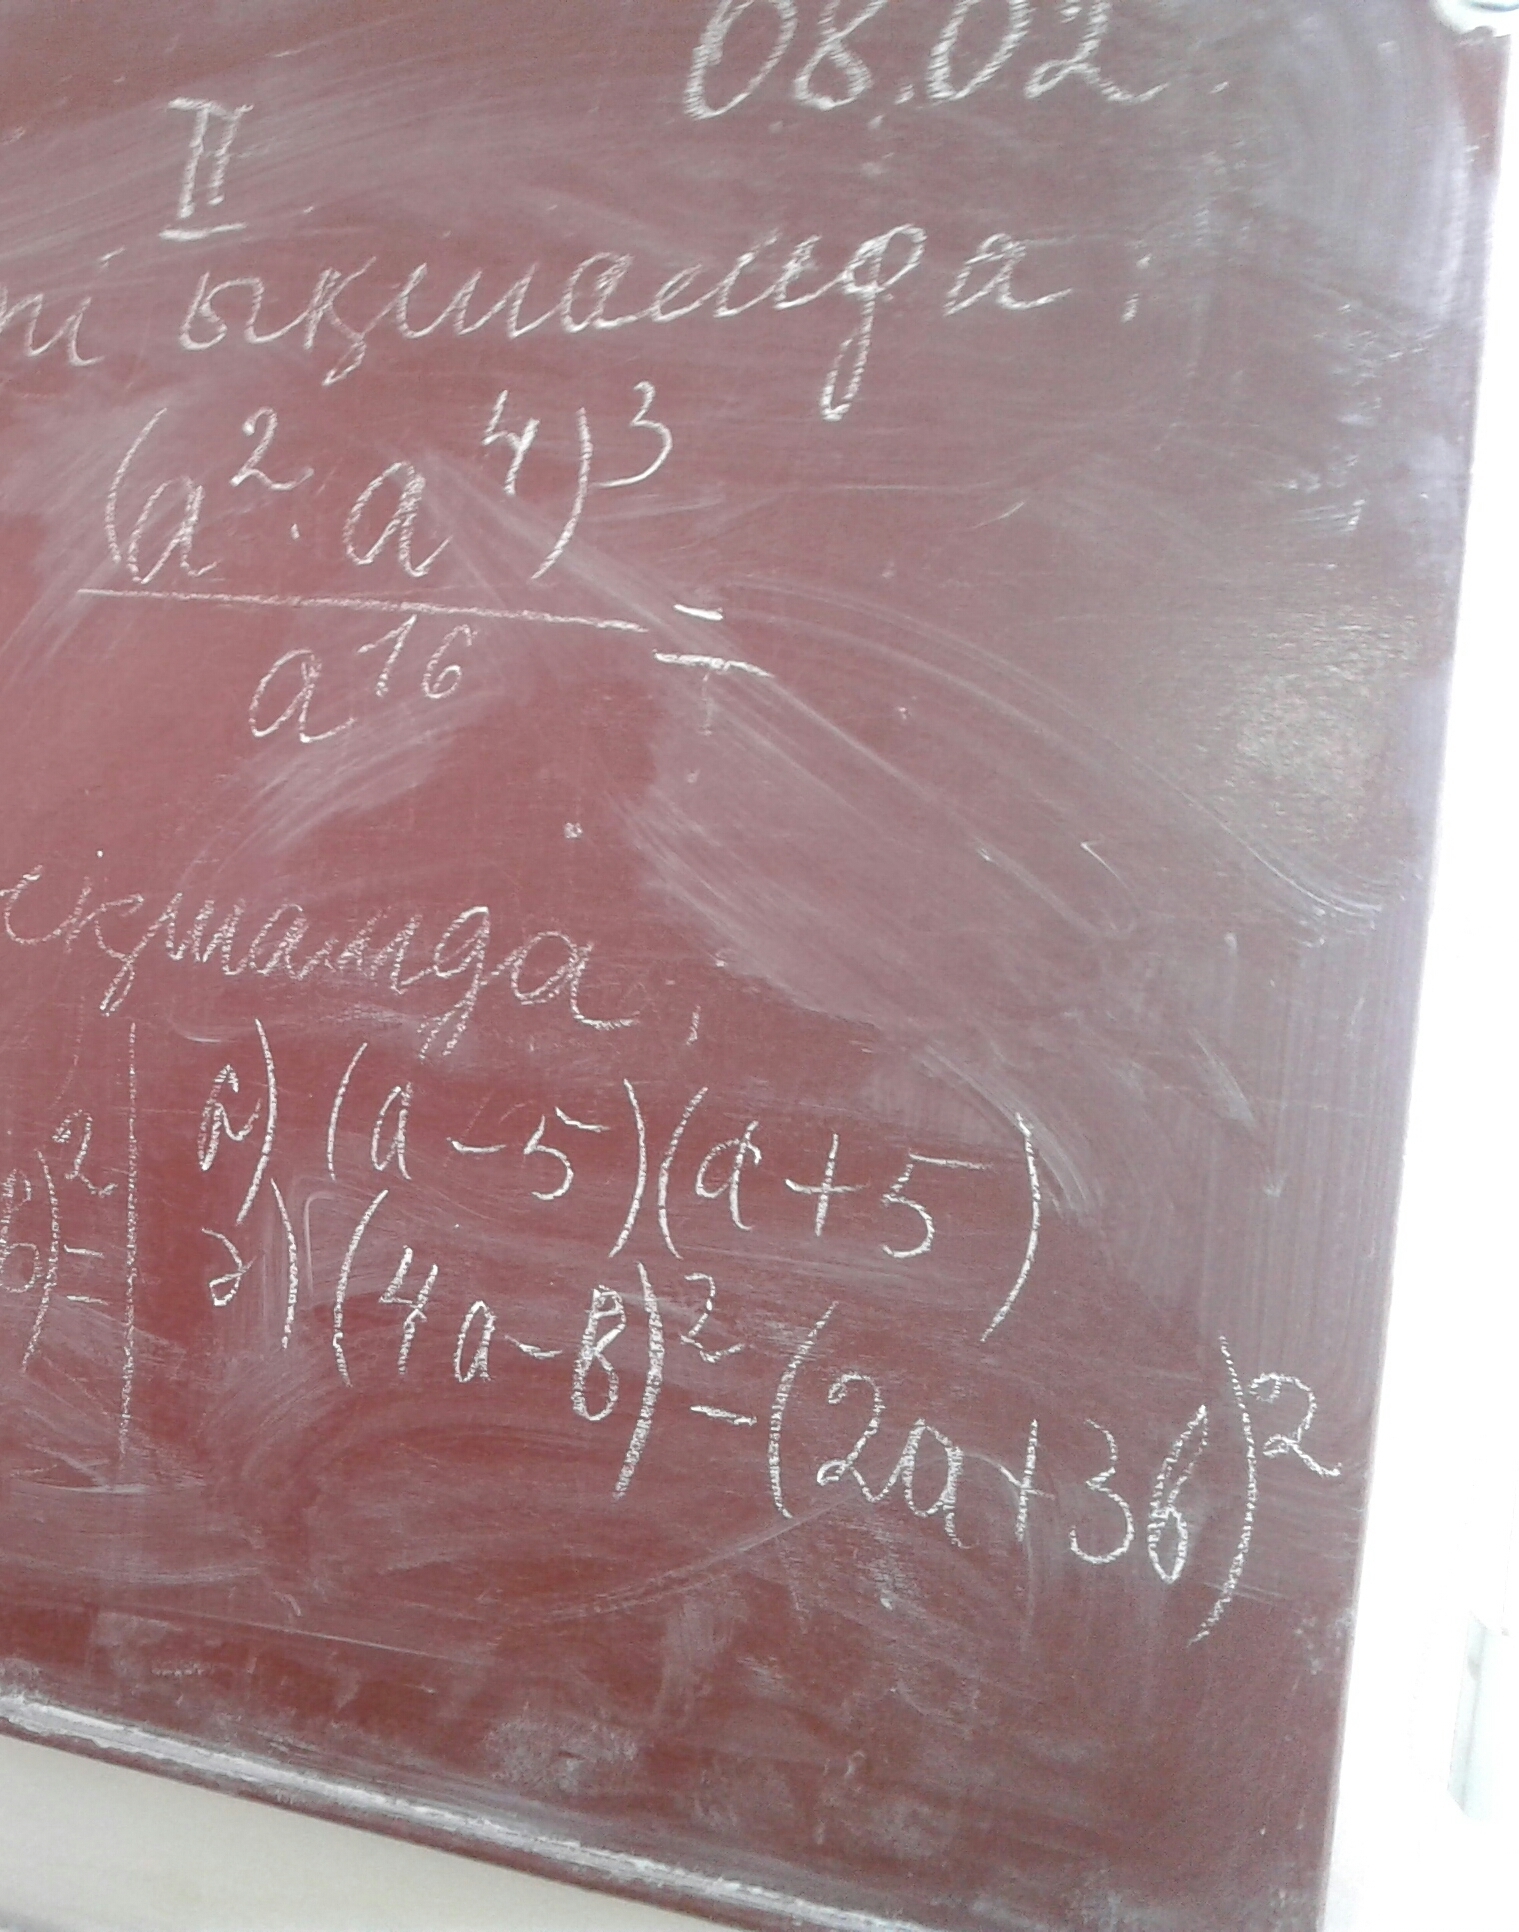 08.02.
II
ті ықшамда:
(a²·a⁴)³
a¹⁶ =
ықшамда,
a) (a-5)(a+5)
в)² =
2) (4a-в)²-(2a+3в)²